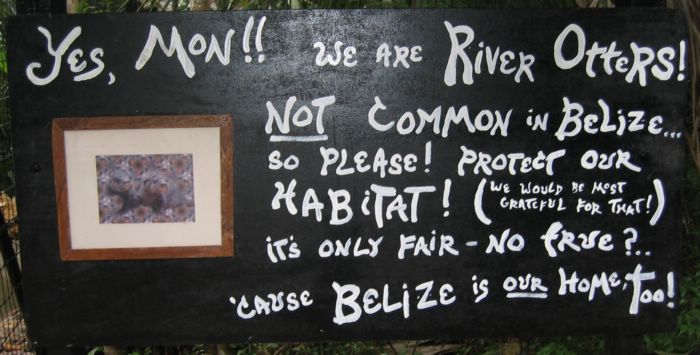 Yes, Mon!! We are River Otters!
NOT common in Belize...
so please! protect our
Habitat! (we would be most
grateful for that!)
it's only fair - no true?..
'cause Belize is our home, too!